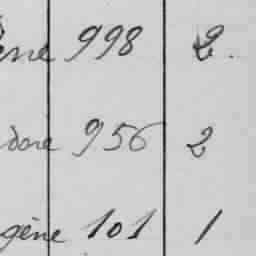 998 2.
dore 956 2
gène 101 1